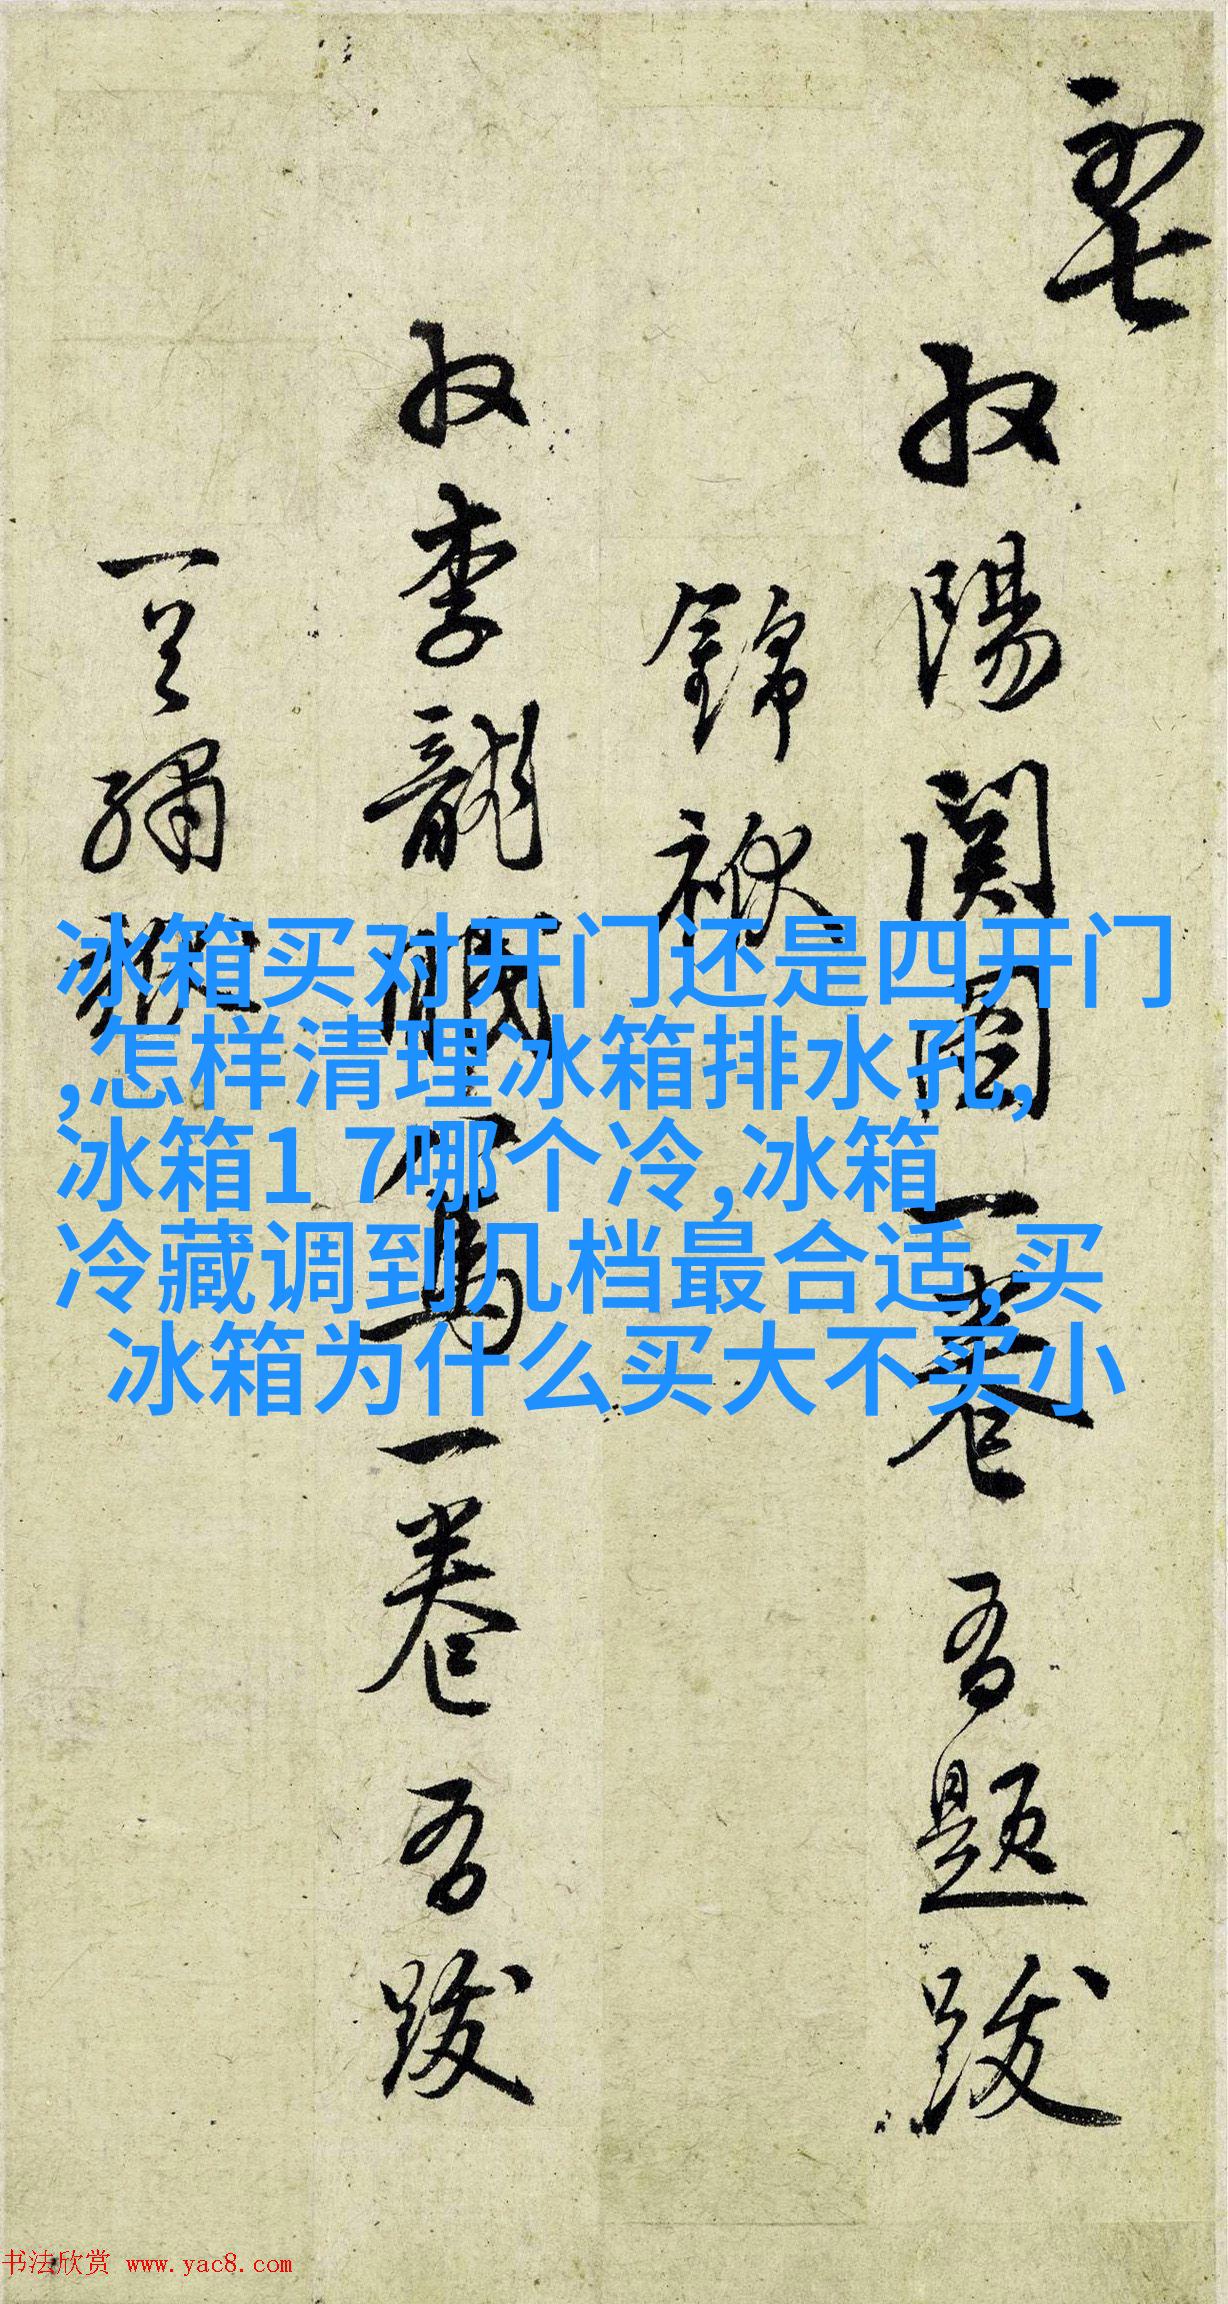 収陽関圖一卷吾題跋
錦袱
収李龍
一卷吾跋
冰箱买对开门还是四开门
,怎样清理冰箱排水孔,
冰箱1 7哪个冷,冰箱
冷藏调到几档最合适,买
冰箱为什么买大不买小
书法欣赏 www.yac8.com